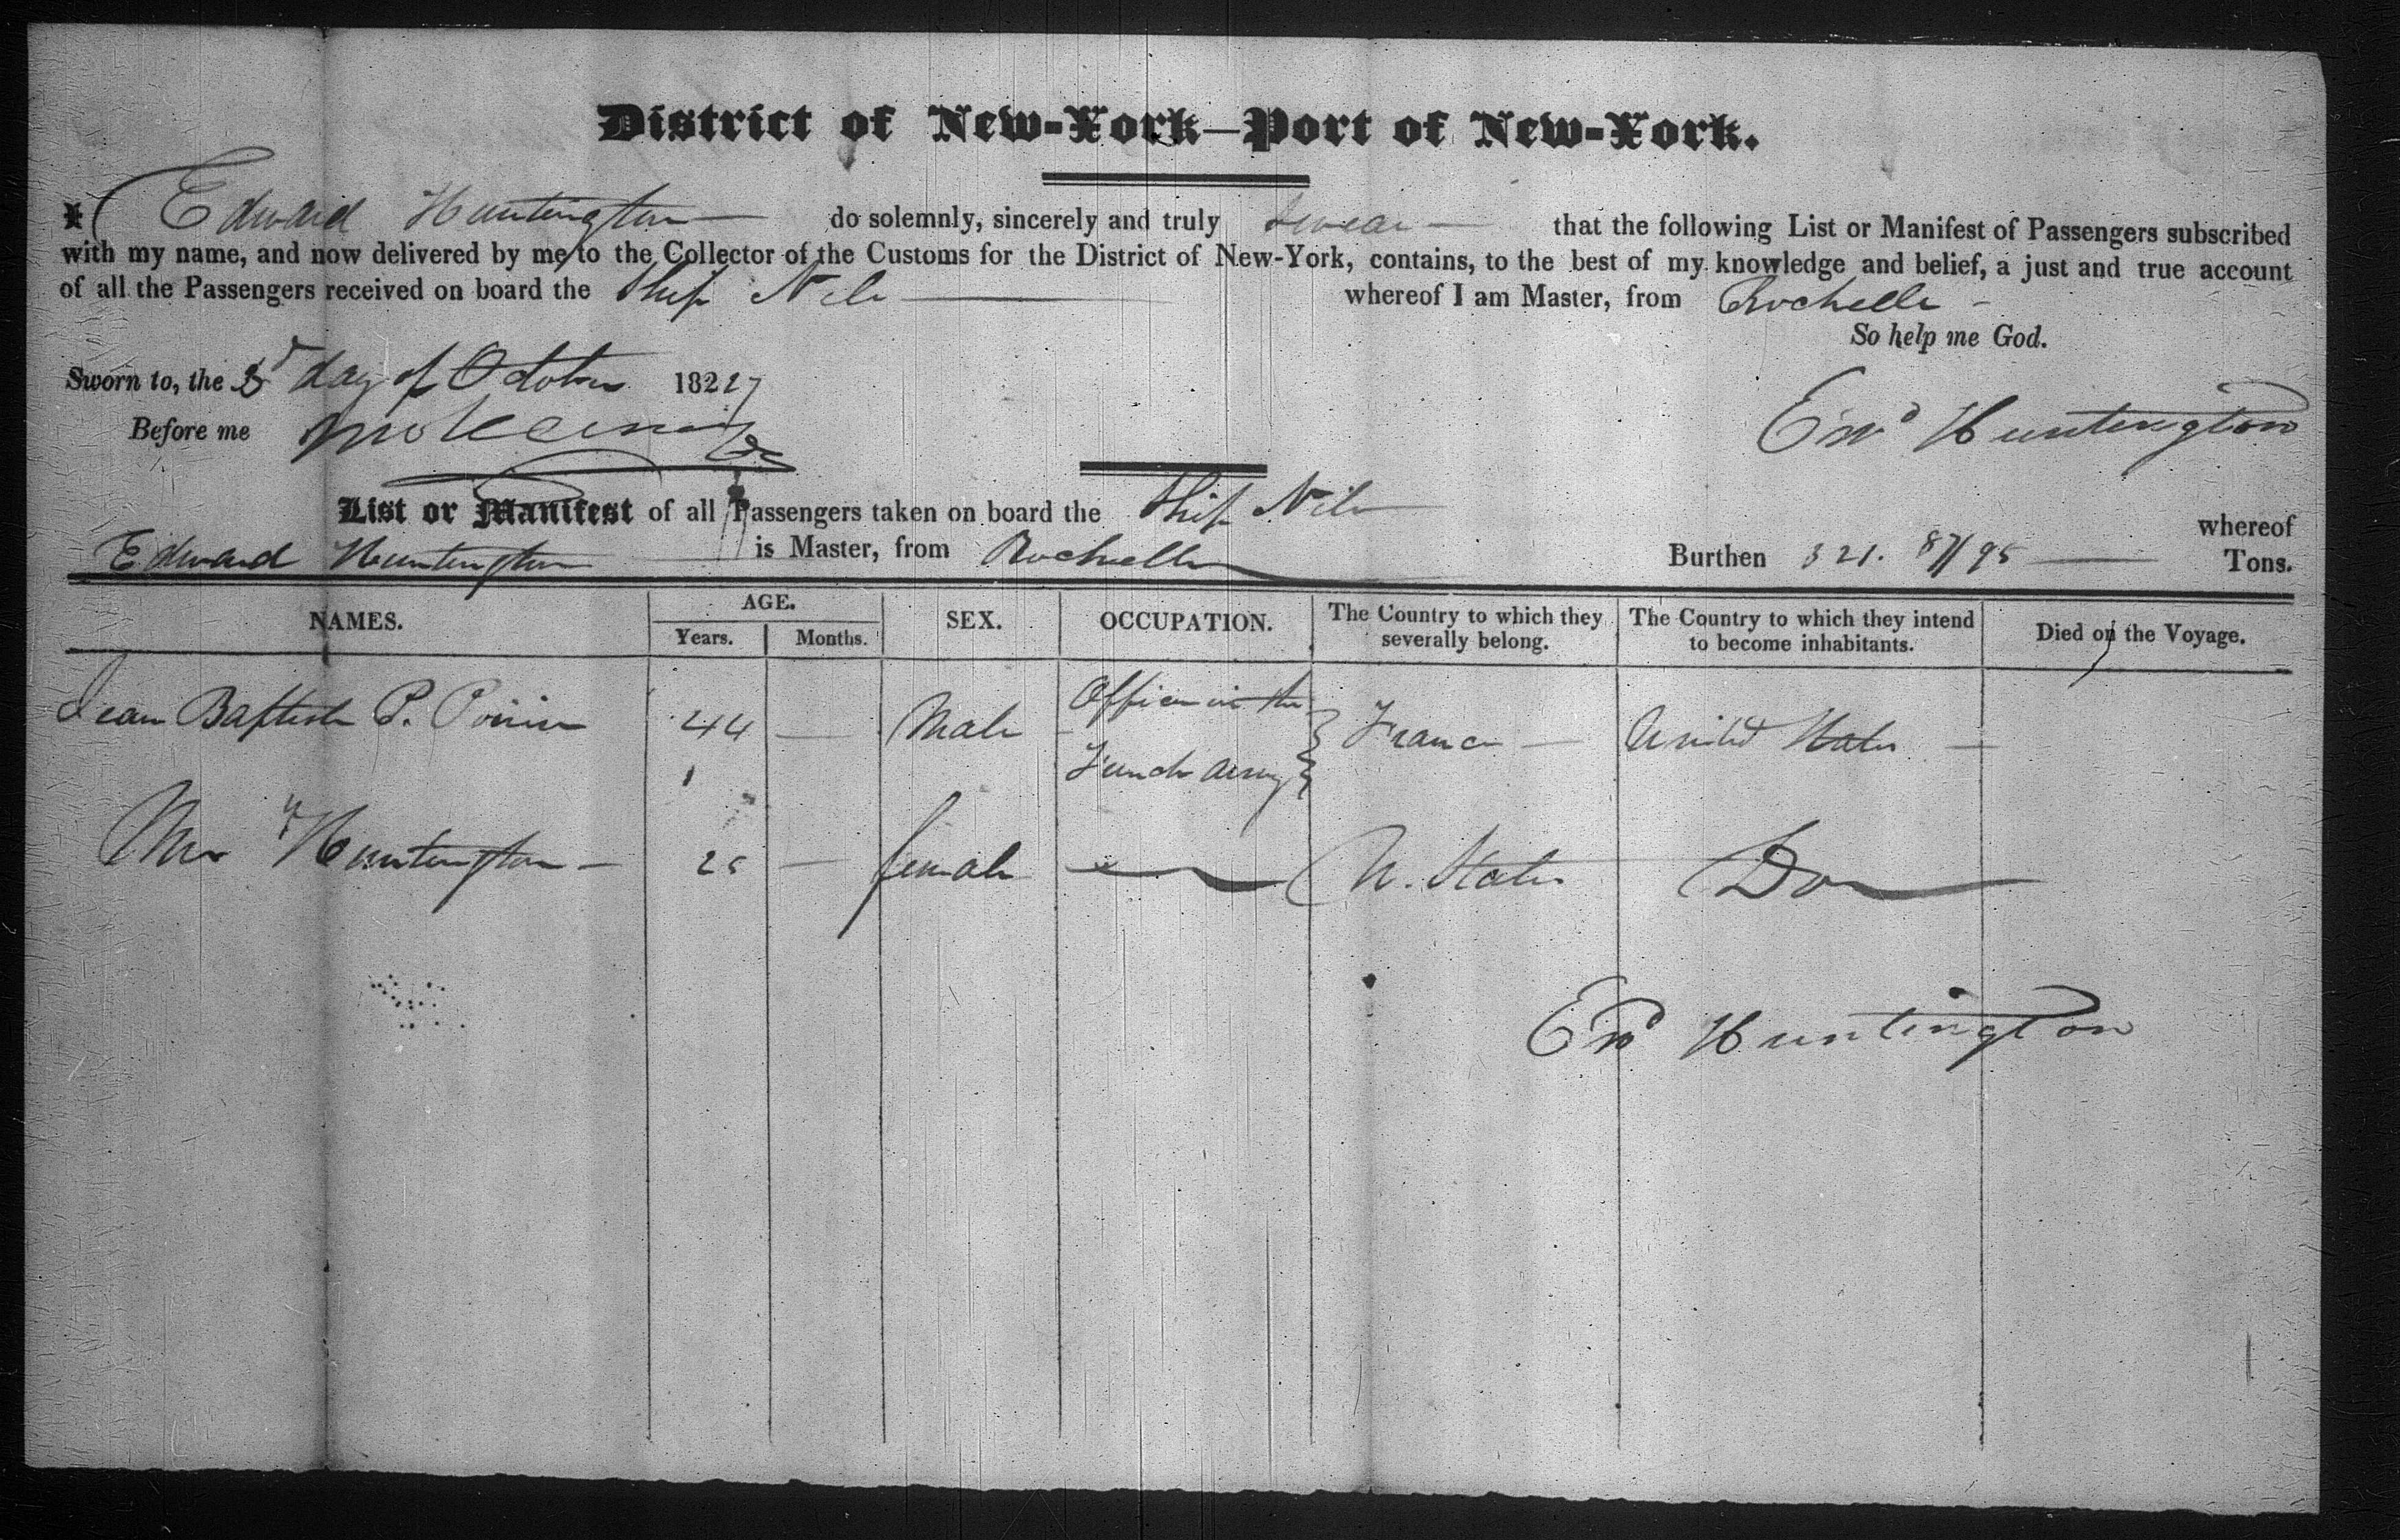 District of New-York—Port of New-York.
I Edward Huntington do solemnly, sincerely and truly swear that the following List or Manifest of Passengers subscribed
with my name, and now delivered by me to the Collector of the Customs for the District of New-York, contains, to the best of my knowledge and belief, a just and true account
of all the Passengers received on board the Ship Nile whereof I am Master, from Rochelle
So help me God.
Sworn to, the 3d day of October 1822
Before me
Edwd Huntington
List or Manifest of all Passengers taken on board the Ship Nile whereof
Edward Huntington is Master, from Rochelle Burthen 321. 87/95 Tons.
NAMES. AGE. SEX. OCCUPATION. The Country to which they severally belong. The Country to which they intend to become inhabitants. Died on the Voyage.
Years. Months.
Jean Baptiste P. Poirier 44 — Male Officer in the French Army France — United States —
Mrs Huntington — — female U. States Do
Edwd Huntington